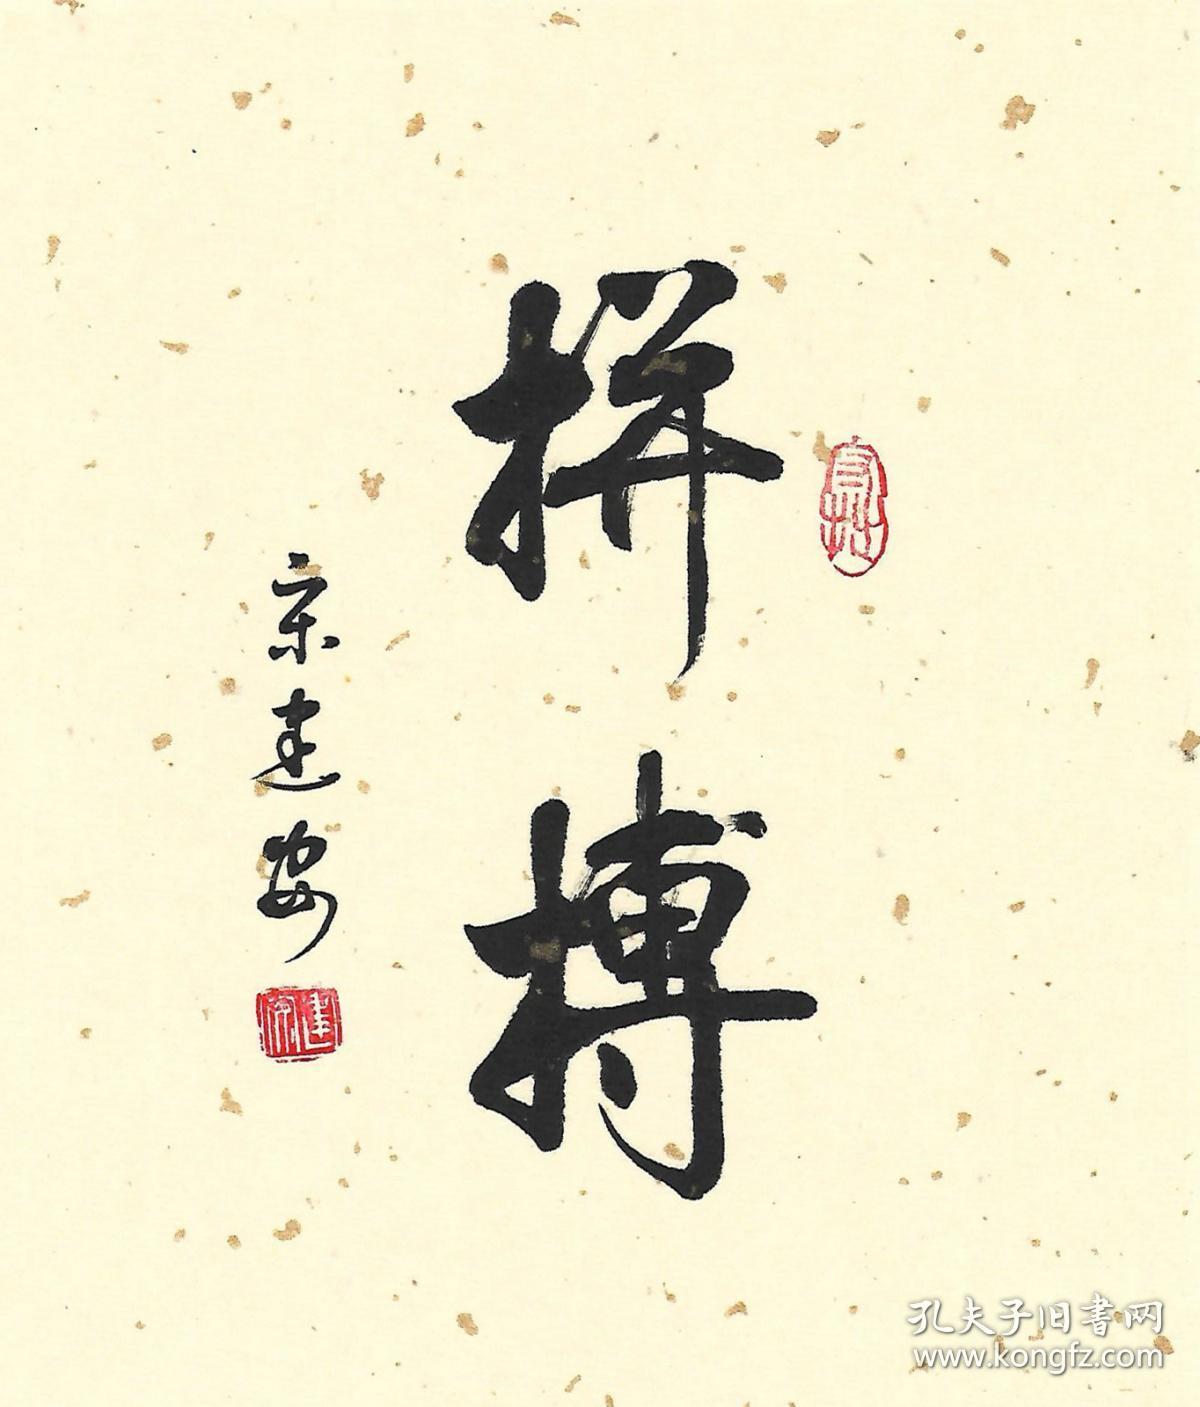 拼搏
宋建安
建安
孔夫子旧书网
www.kongfz.com